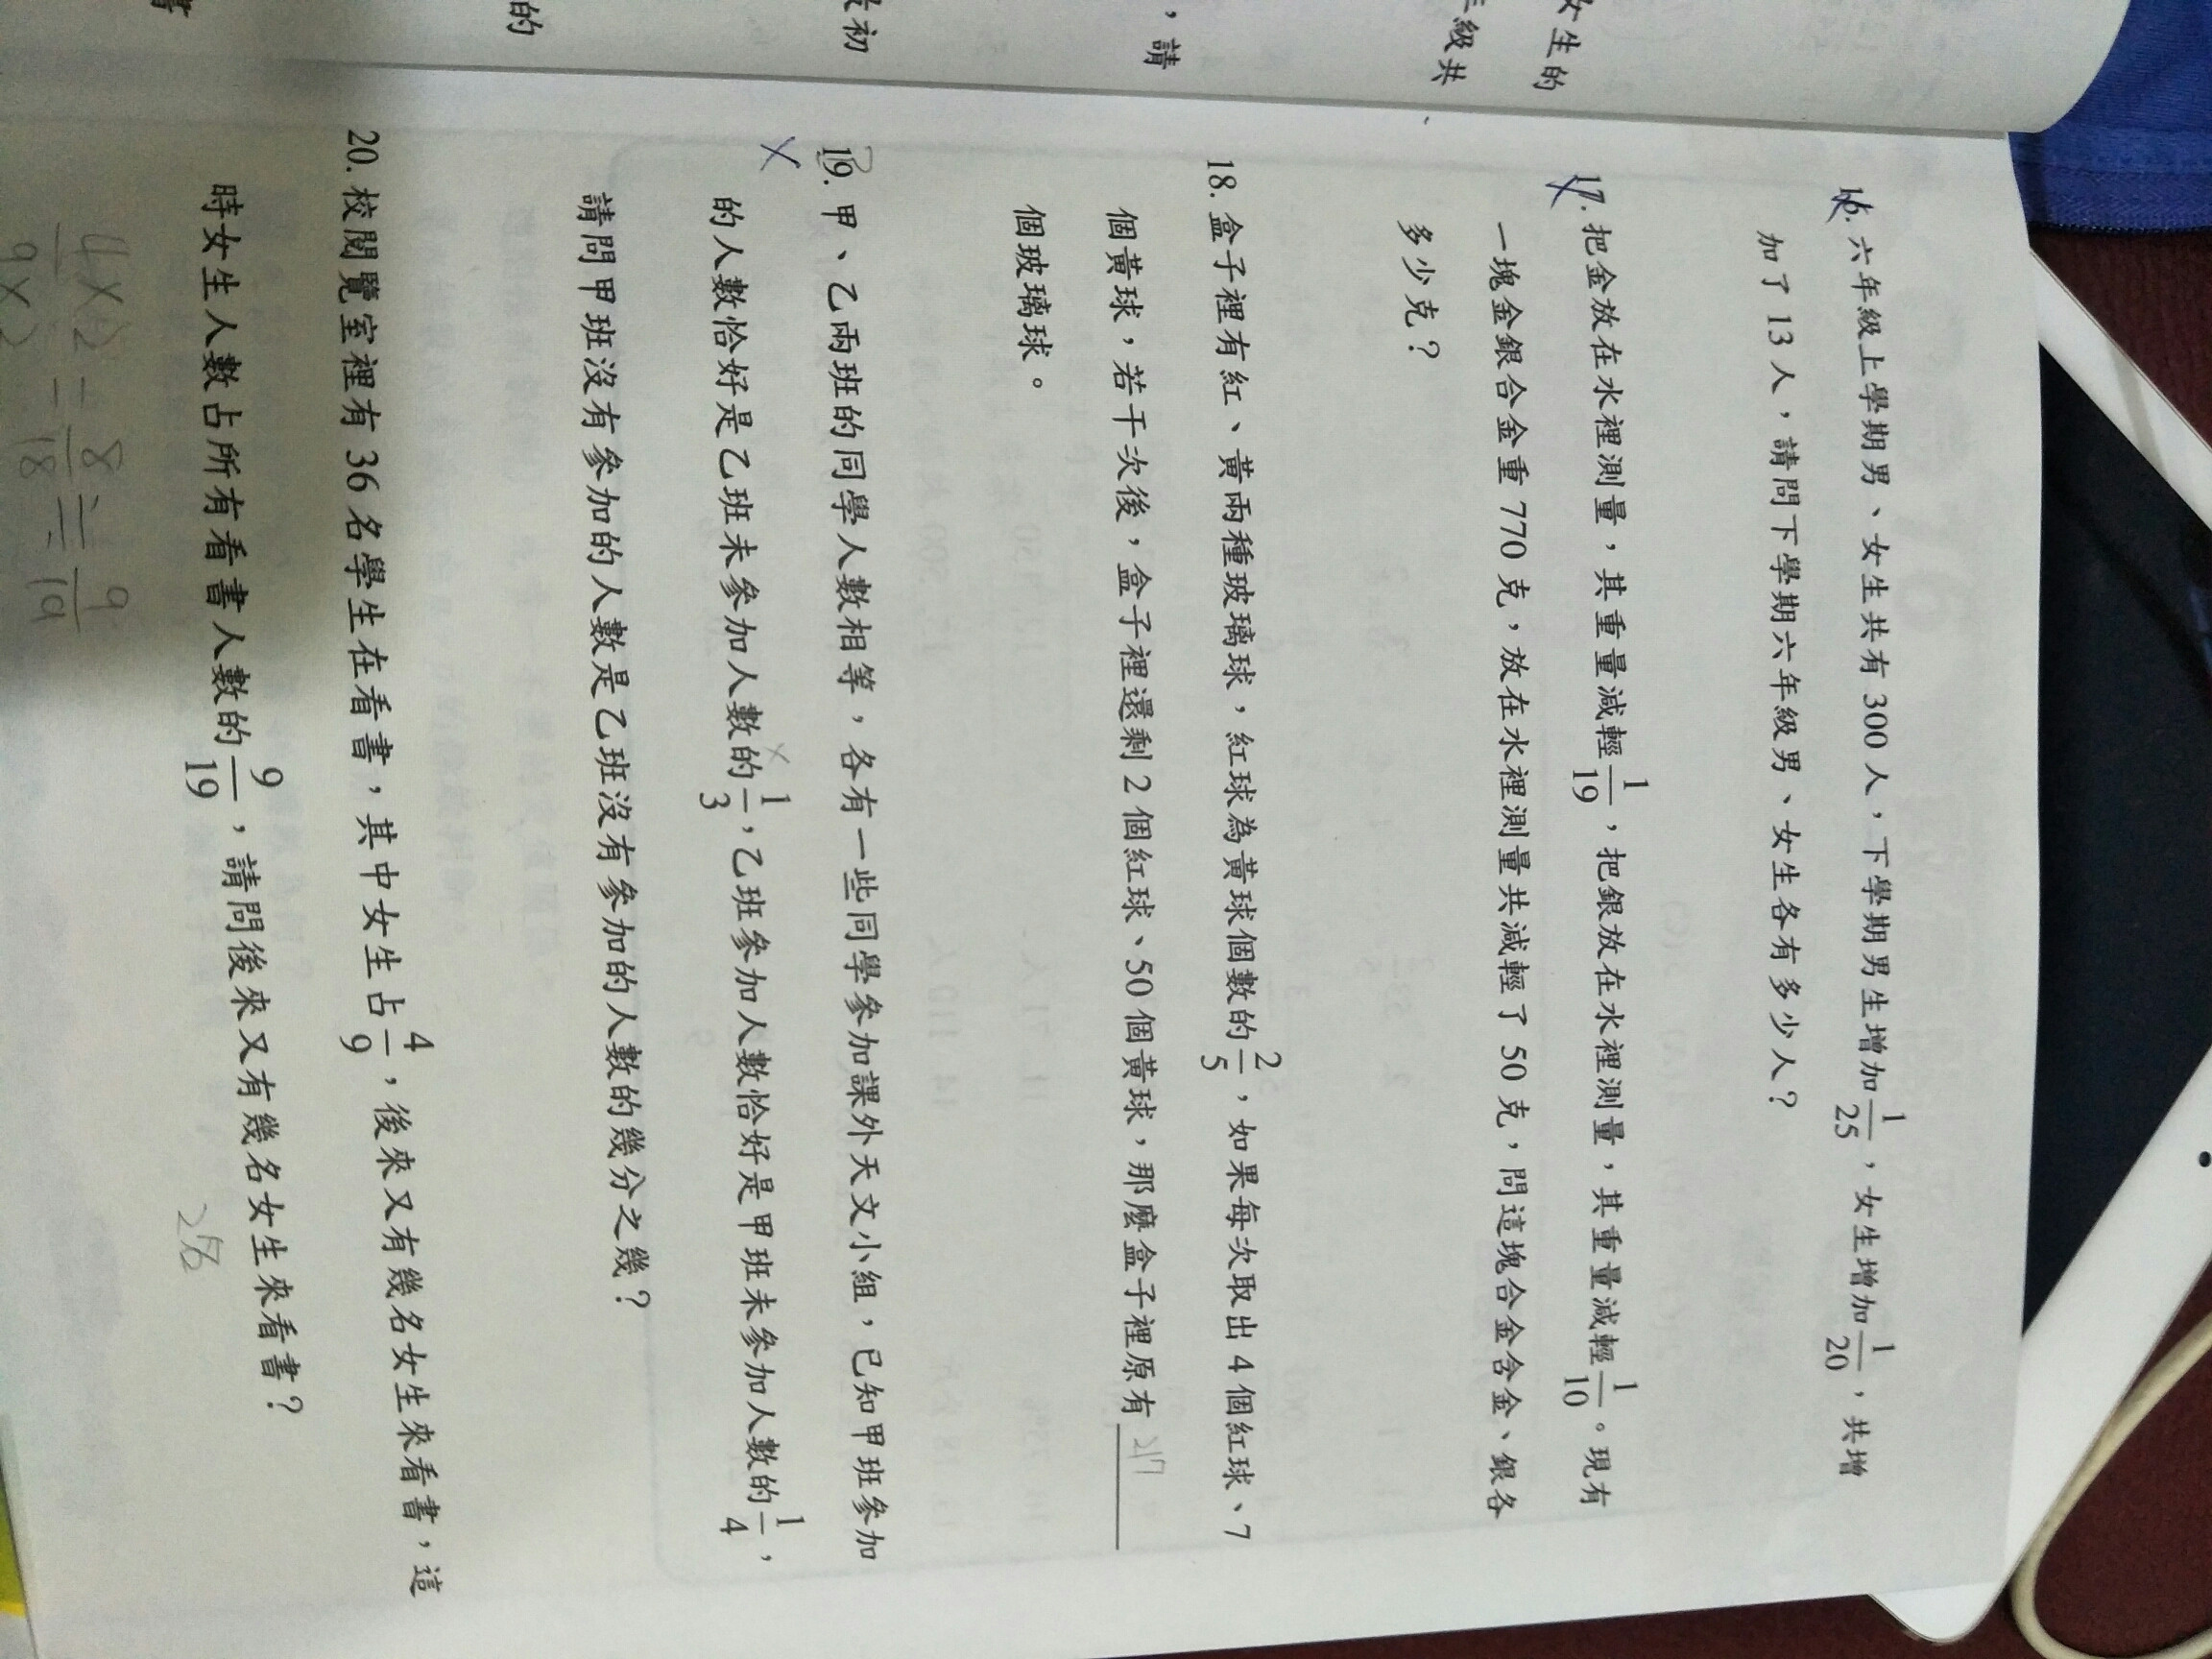 女生的
級共
，請
初
的
16. 六年級上學期男、女生共有 300 人，下學期男生增加 1/25，女生增加 1/20，共增
加了 13 人，請問下學期六年級男、女生各有多少人？
17. 把金放在水裡測量，其重量減輕 1/19，把銀放在水裡測量，其重量減輕 1/10。現有
一塊金銀合金重 770 克，放在水裡測量共減輕了 50 克，問這塊合金含金、銀各
多少克？
18. 盒子裡有紅、黃兩種玻璃球，紅球為黃球個數的 2/5，如果每次取出 4 個紅球、7
個黃球，若干次後，盒子裡還剩 2 個紅球、50 個黃球，那麼盒子裡原有 217
個玻璃球。
19. 甲、乙兩班的同學人數相等，各有一些同學參加課外天文小組，已知甲班參加
的人數恰好是乙班未參加人數的 1/3，乙班參加人數恰好是甲班未參加人數的 1/4，
請問甲班沒有參加的人數是乙班沒有參加的人數的幾分之幾？
20. 校閱覽室裡有 36 名學生在看書，其中女生占 4/9，後來又有幾名女生來看書，這
時女生人數占所有看書人數的 9/19，請問後來又有幾名女生來看書？
4×2/9×2 = 8/18 = 9/19